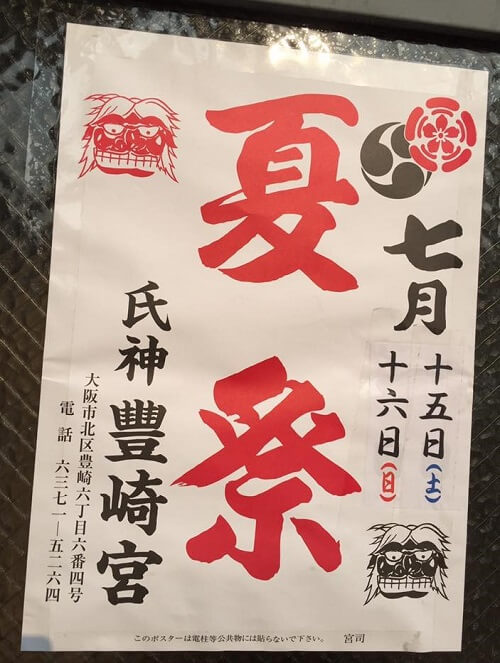 七月
十五日(土)
十六日(日)
夏祭
氏神 豐崎宮
大阪市北区豊崎六丁目六番四号
電話 六三七一―五二六四
このポスターは電柱等公共物には貼らないで下さい。 宮司